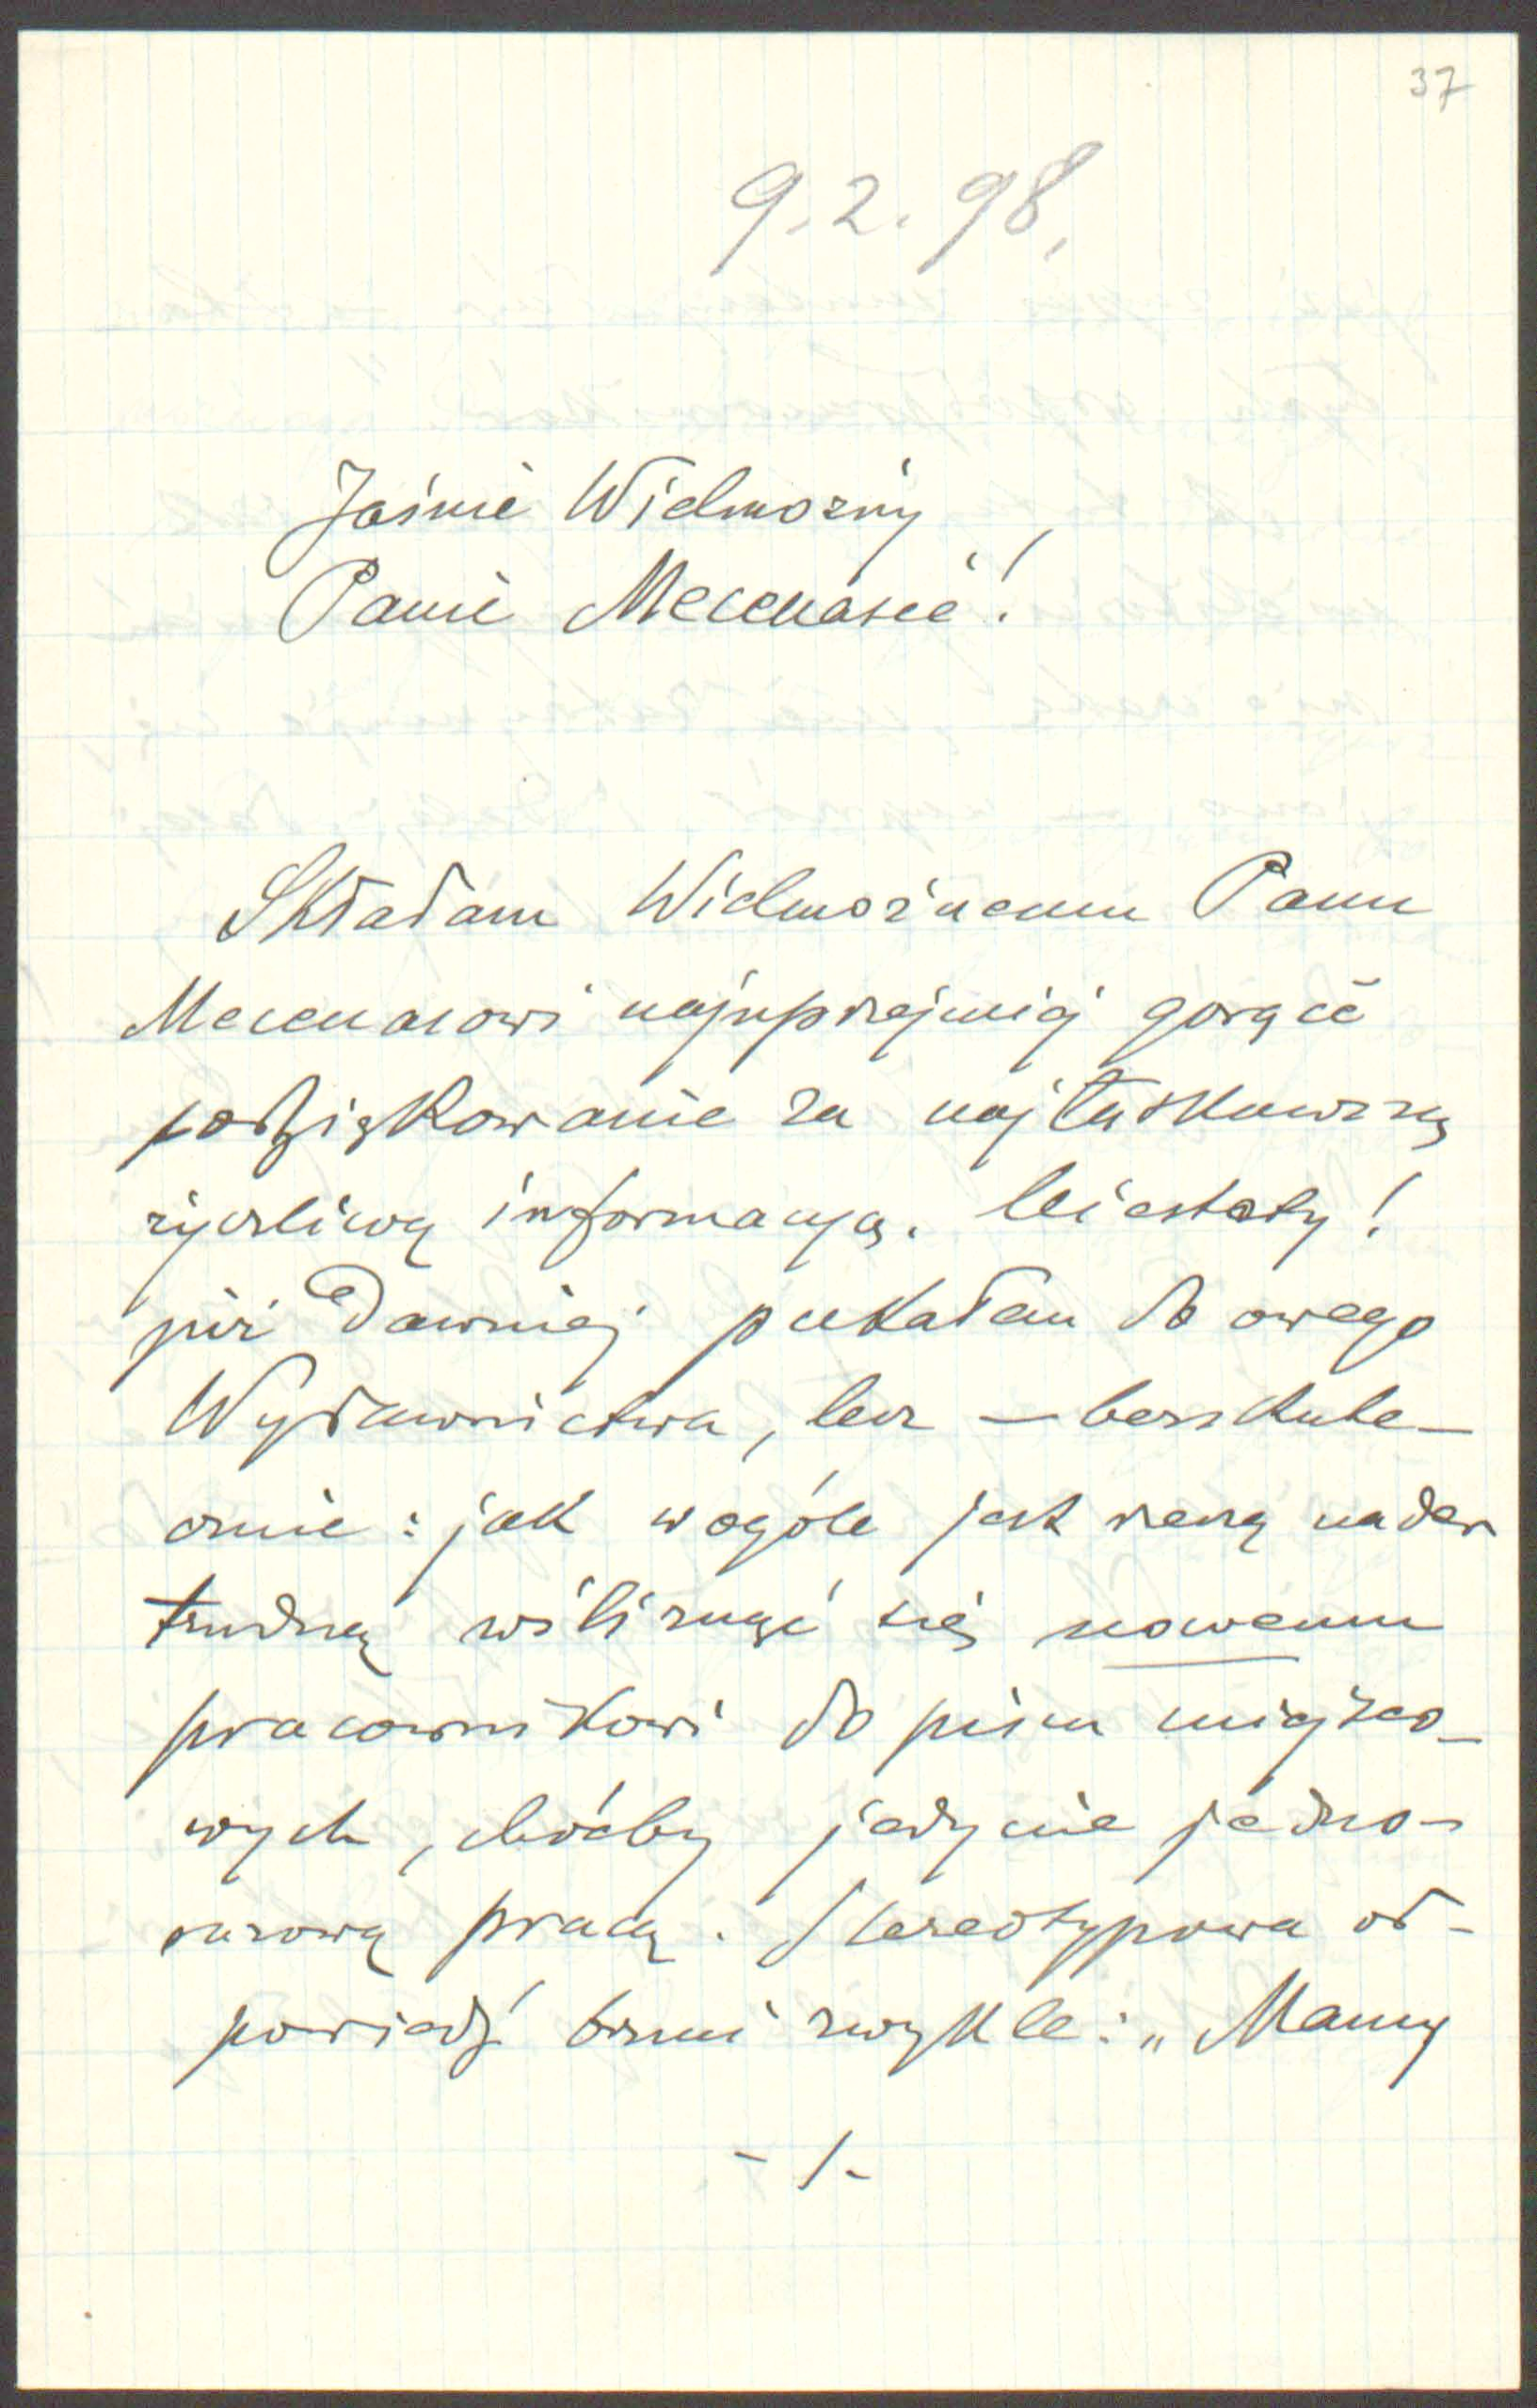 37
9.2.98.
Jaśnie Wielmożny
Panie Mecenasie!
Składam Wielmożnemu Panu
Mecenasowi najuprzejmiej gorące
podziękowanie za najłaskawszą
życzliwą informacyą. Niestety!
już dawniej pukałem do owego
Wydawnictwa, lecz — bezskute-
cznie: jak wogóle jest rzeczą nader
trudną wślizngąć się nowemu
pracownikowi do pism miejsco-
wych, choćby jedynie jedno-
razową pracą. Stereotypowa od-
powiedź brzmi zwykle: „Mamy
- /-